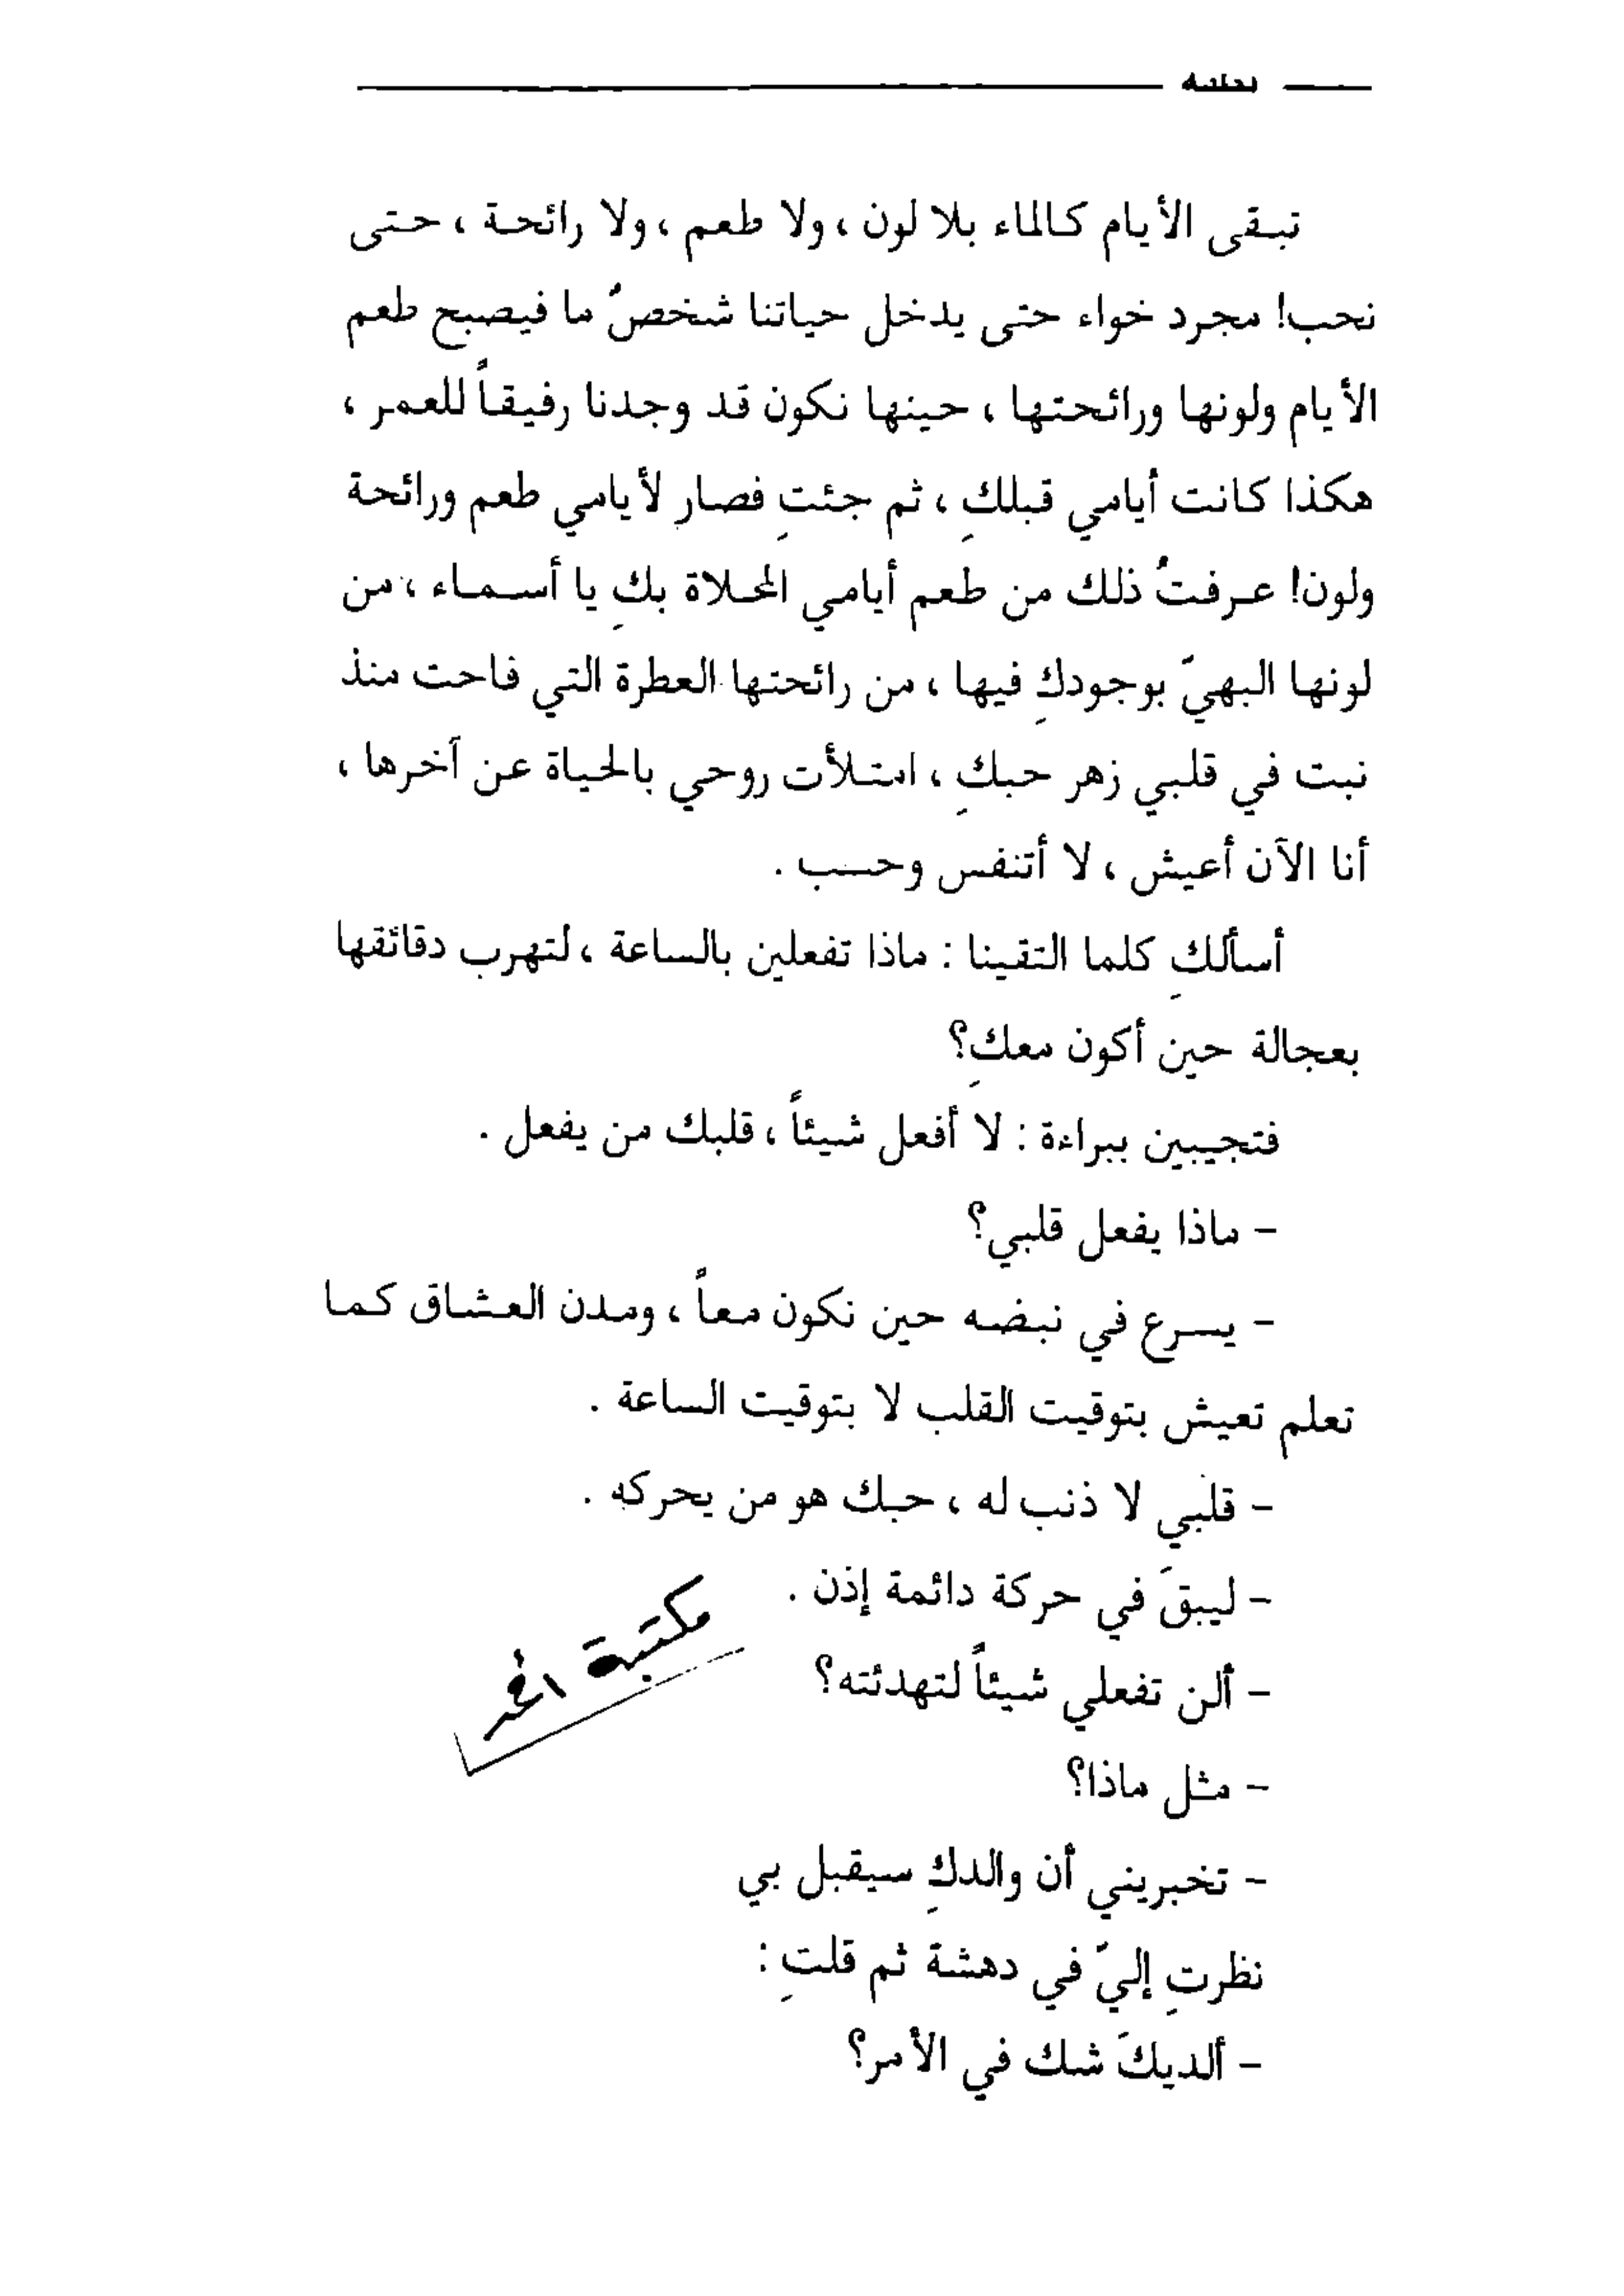 تبقى الأيام كالماء بلا لون ، ولا طعم ، ولا رائحة ، حتى
نحب! مجرد خواء حتى يدخل حياتنا شخصٌ ما فيصبح طعم
الأيام ولونها ورائحتها ، حينها نكون قد وجدنا رفيقاً للعمر ،
هكذا كانت أيامي قبلكِ ، ثم جئتِ فصار لأيامي طعم ورائحة
ولون! عرفتُ ذلك من طعم أيامي المحلاة بكِ يا أسماء ، من
لونها البهيّ بوجودكِ فيها ، من رائحتها العطرة التي فاحت منذ
نبت في قلبي زهر حبكِ ، امتلأت روحي بالحياة عن آخرها ،
أنا الآن أعيش ، لا أتنفس وحسب .
أسألكِ كلما التقينا : ماذا تفعلين بالساعة ، لتهرب دقائقها
بعجالة حين أكون معكِ؟
فتجيبين ببراءة : لا أفعل شيئاً ، قلبك من يفعل .
- ماذا يفعل قلبي؟
- يسرع في نبضه حين نكون معاً ، ومدن العشاق كما
تعلم تعيش بتوقيت القلب لا بتوقيت الساعة .
- قلبي لا ذنب له ، حبك هو من يحركه .
- ليبقَ في حركة دائمة إذن .
- ألن تفعلي شيئاً لتهدئته؟
- مثل ماذا؟
- تخبريني أن والدكِ سيقبل بي
نظرتِ إليّ في دهشة ثم قلتِ :
- ألديكَ شك في الأمر؟
مكتبة